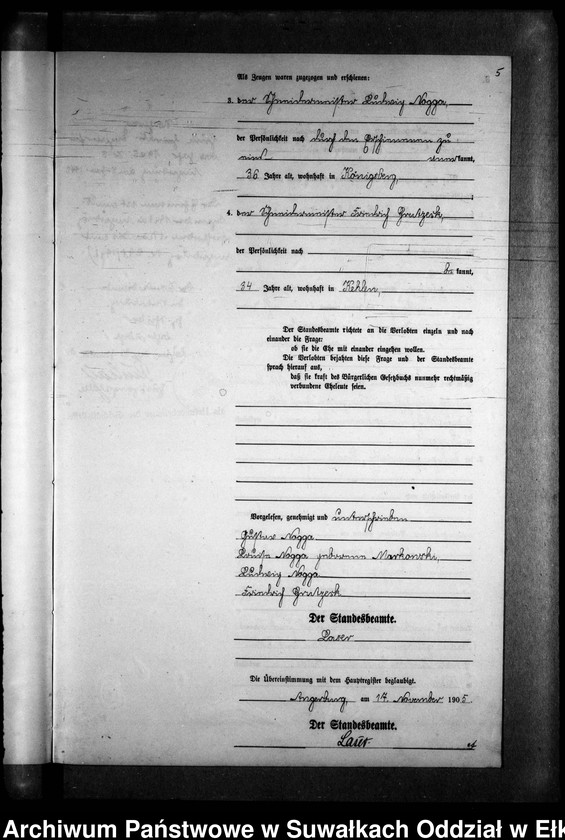 5
Als Zeugen waren zugezogen und erschienen:
3. der Schneidermeister Ludwig Nogga,
der Persönlichkeit nach durch den Erschienenen zu
eins kannt,
36 Jahre alt, wohnhaft in Königsberg,
4. der Schneidermeister Friedrich Grutzeck,
der Persönlichkeit nach
be kannt,
34 Jahre alt, wohnhaft in Kehlen,
Der Standesbeamte richtete an die Verlobten einzeln und nach
einander die Frage:
ob sie die Ehe mit einander eingehen wollen.
Die Verlobten bejahten diese Frage und der Standesbeamte
sprach hierauf aus,
daß sie kraft des Bürgerlichen Gesetzbuchs nunmehr rechtmäßig
verbundene Eheleute seien.
Vorgelesen, genehmigt und unterschrieben
Gustav Nogga
Louise Nogga geborene Markowski,
Ludwig Nogga
Friedrich Grutzeck
Der Standesbeamte.
Laser
Die Übereinstimmung mit dem Hauptregister beglaubigt.
Angerburg, am 14. November 1905
Der Standesbeamte.
Archiwum Państwowe w Suwałkach Oddział w Ełk